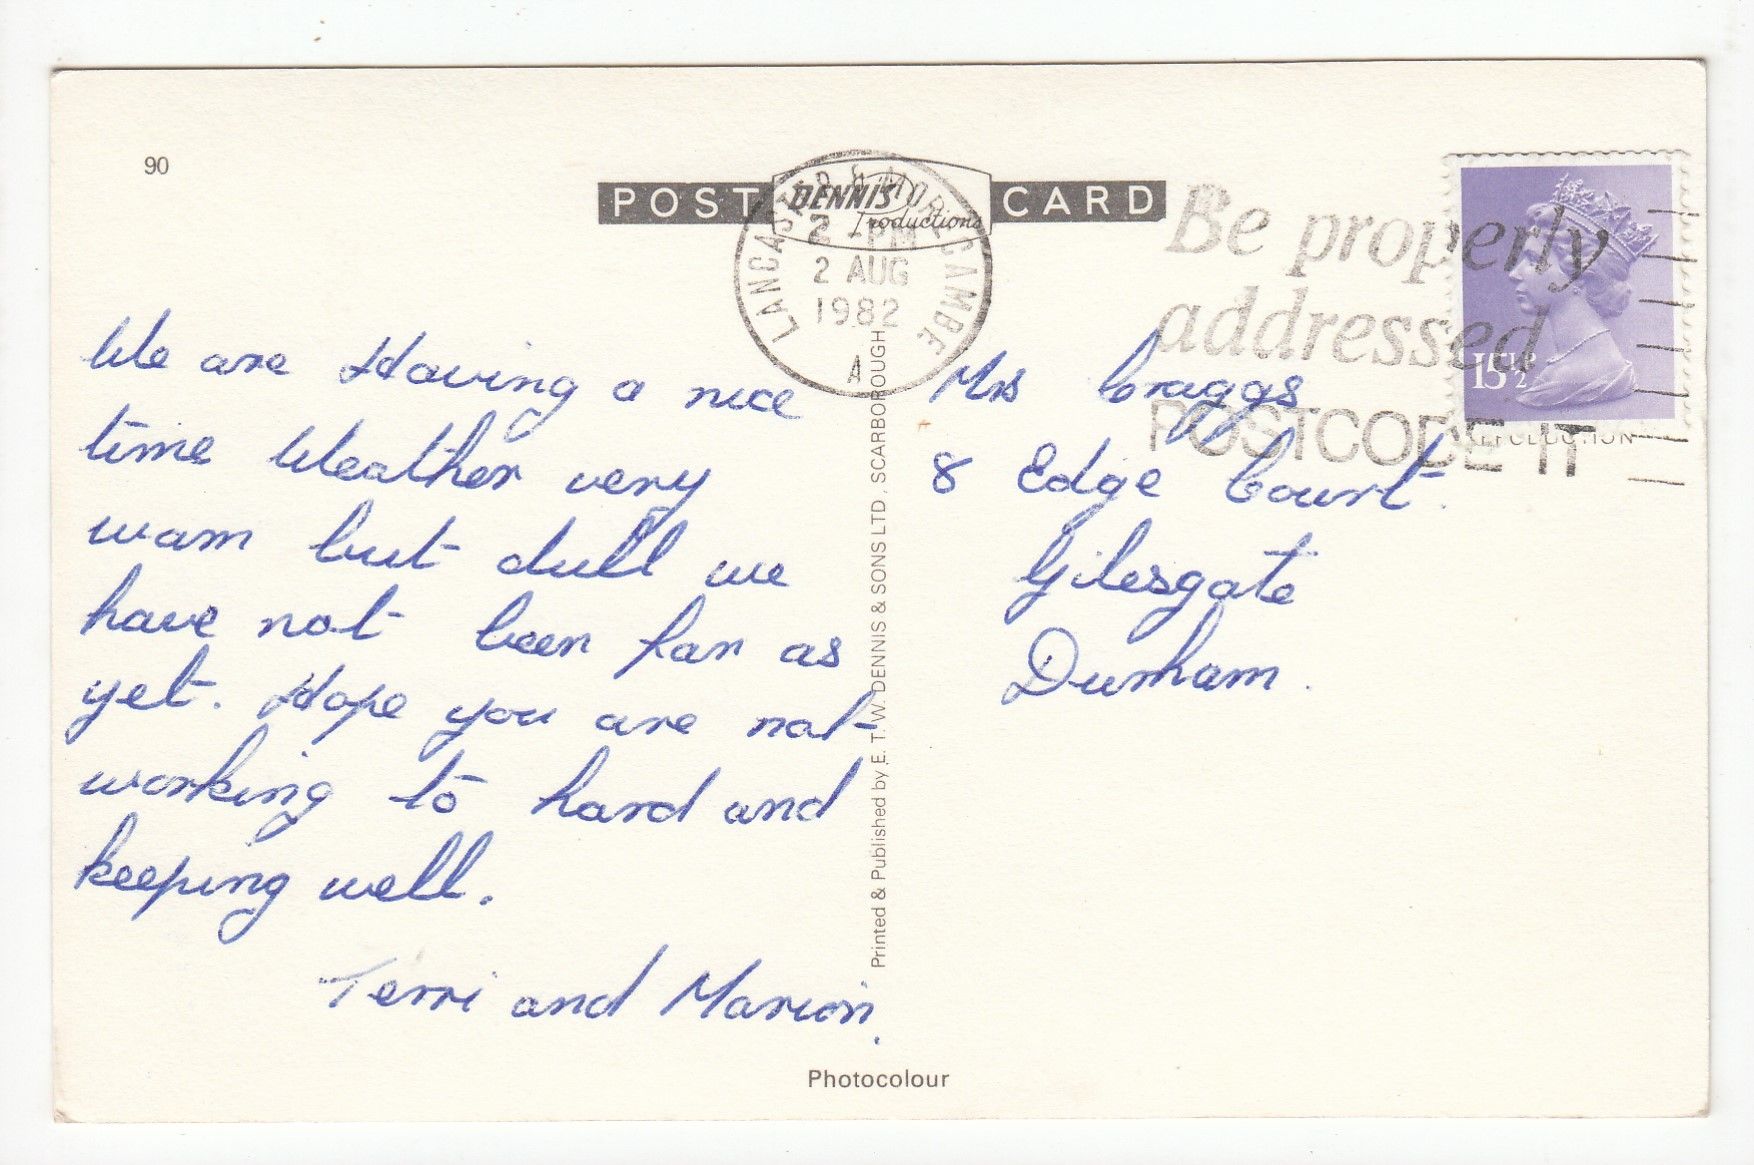 90
POST CARD
DENNIS
Productions
LANCASTER & MORECAMBE
2 - PM
2 AUG
1982
A
Be properly
addressed
POSTCODE IT
15½P
We are Having a nice
time Weather very
warm but dull we
have not been far as
yet. Hope you are not
working to hard and
keeping well.
Terri and Marion.
Printed & Published by E. T. W. DENNIS & SONS LTD., SCARBOROUGH
Mrs Craggs
8 Edge Court.
Gilesgate
Durham.
Photocolour